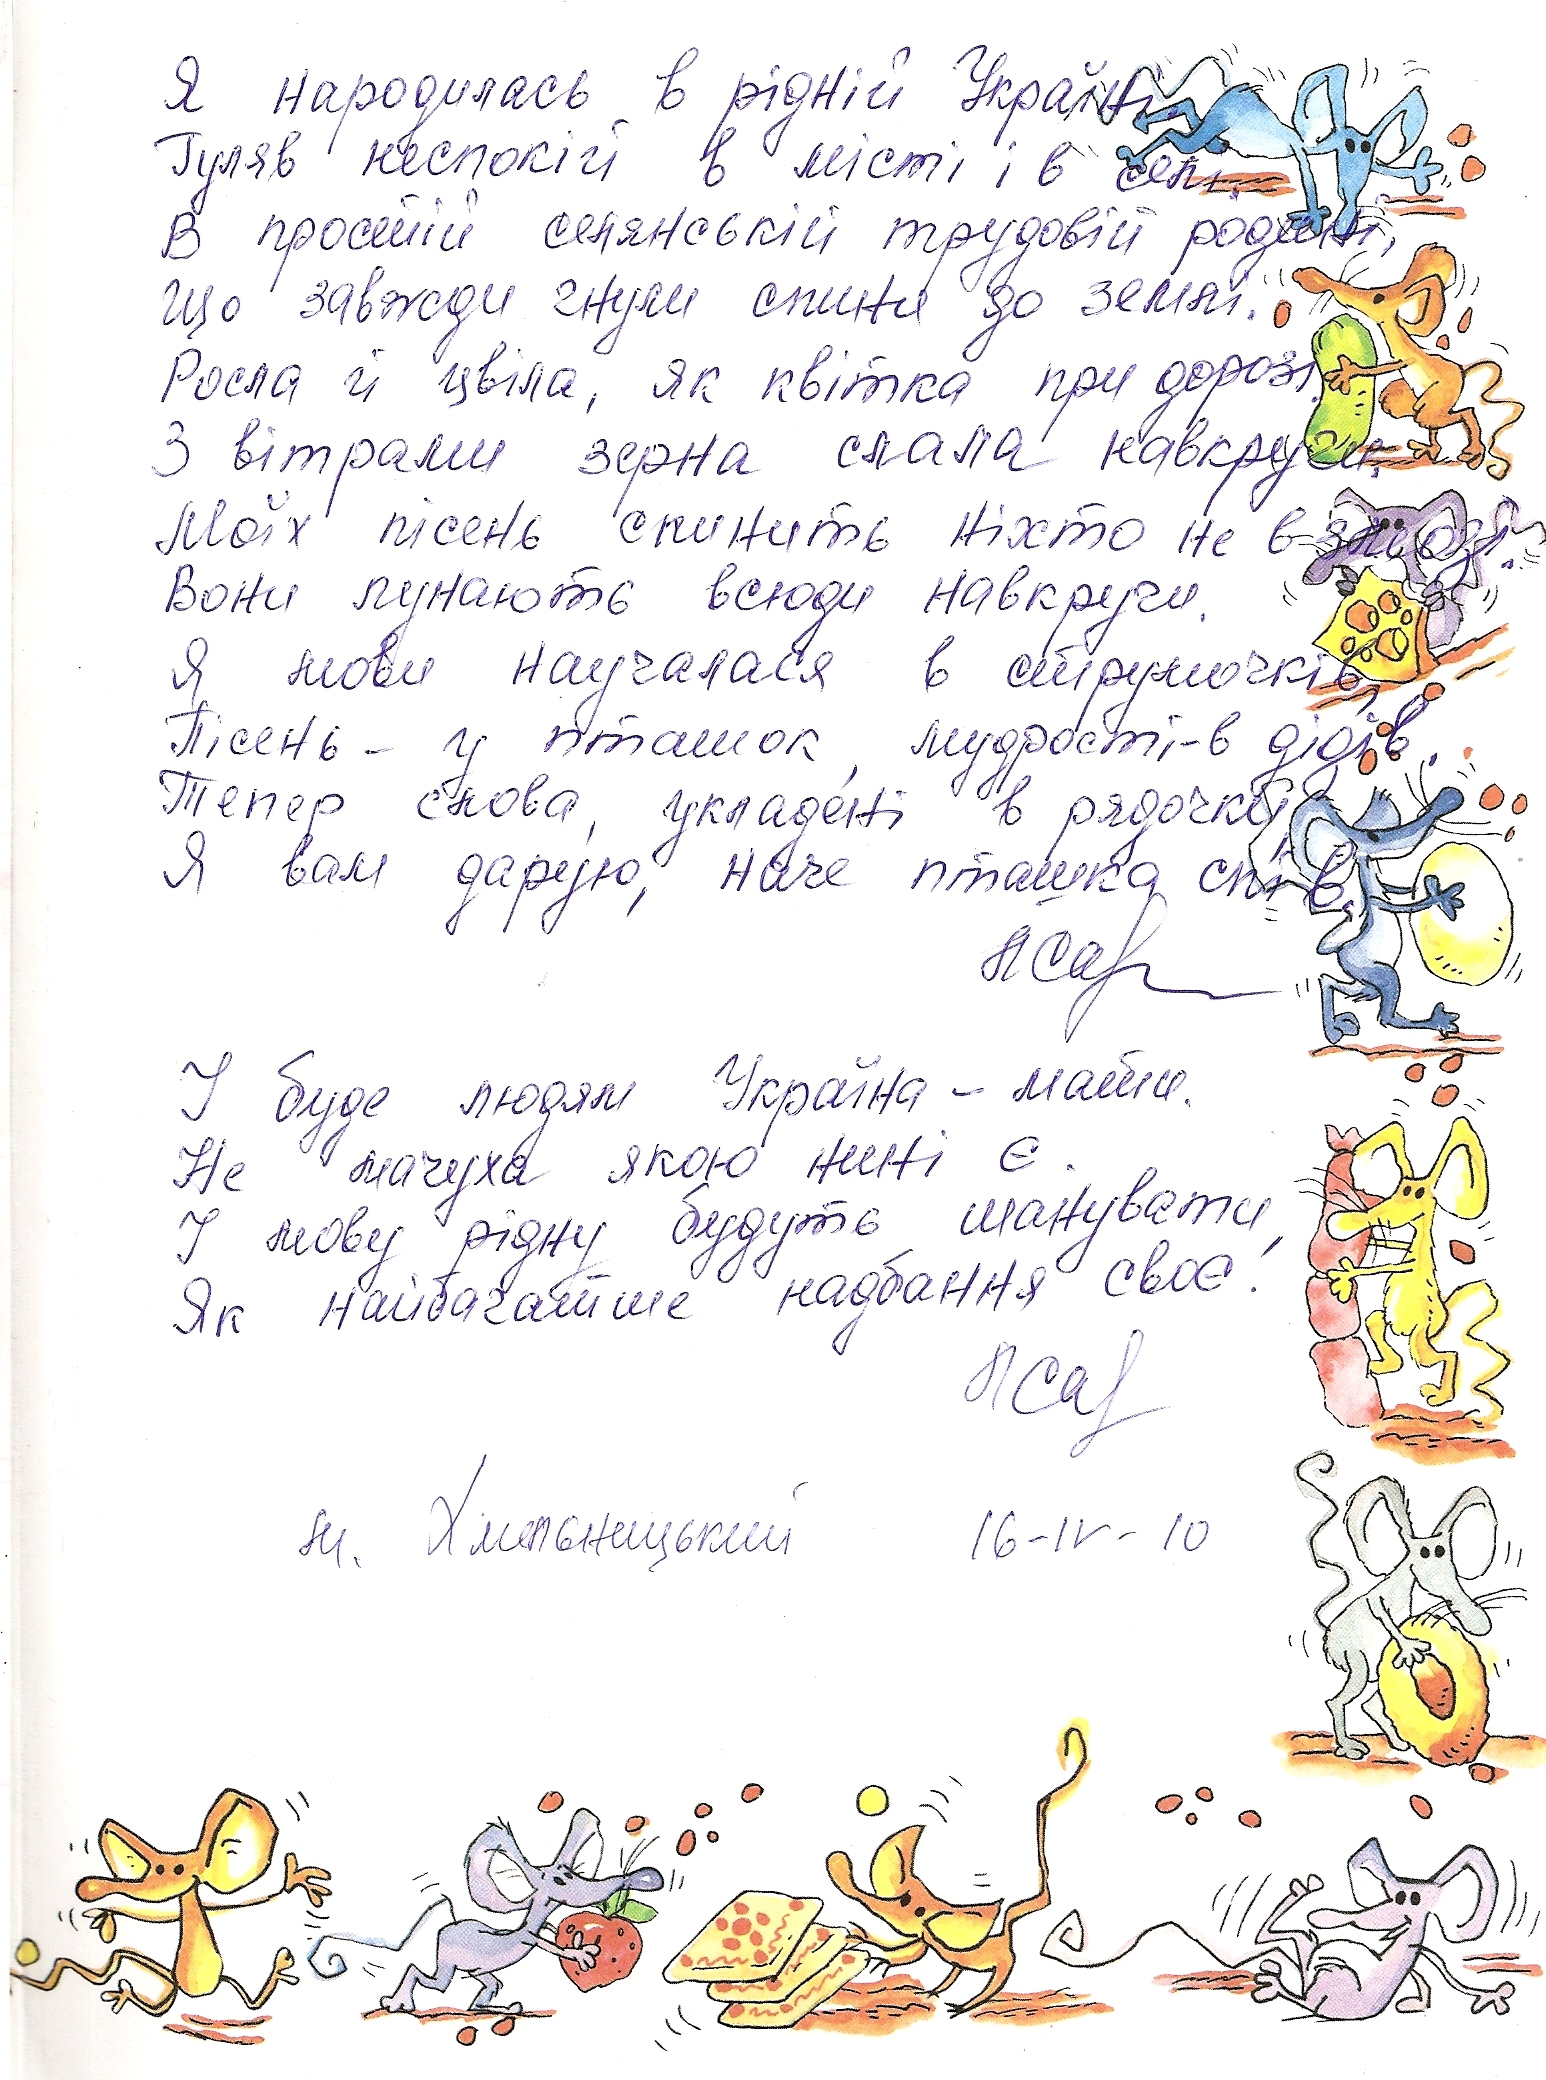 Я народилась в рідній Україні.
Гуляв неспокій в місті і в селі.
В простій селянській трудовій родині,
Що завжди гнули спини до землі.
Росла й цвіла, як квітка при дорозі.
З вітрами зерна слала навкруги.
Моїх пісень спинить ніхто не в змозі.
Вони лунають всюди навкруги.
Я мови научалася в струмочків,
Пісень - у пташок, мудрості - в дідів.
Тепер слова, укладені в рядочки,
Я вам дарую, наче пташка спів.
І буде людям Україна - мати.
Не мачуха якою нині є.
І мову рідну будуть шанувати,
Як найбагатше надбання своє!
м. Хмельницький 16-IV-10